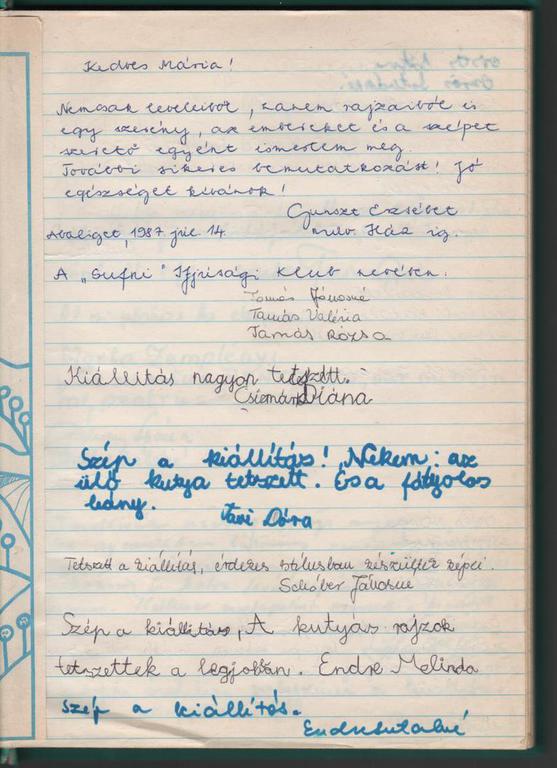 Kedves Mária!
Nemcsak leveleiből, hanem rajzaiból is
egy szerény, az embereket és a szépet
szerető egyént ismertem meg.
További sikeres bemutatkozást! Jó
egészséget kívánok!
Gunszt Erzsébet
Abaliget, 1987. júl. 14. műv. Ház ig.
A „Sufni" Ifjúsági Klub nevében.
Tamás Jánosné
Tamás Valéria
Tamás Rózsa
Kiállítás nagyon tetszett.
Diána
Szép a kiállítás! Nekem: az
ülő kutya tetszett. És a fátyolos
leány.
Dóra
Tetszett a kiállítás, érdekes stílusban készültek képei.
Schóber Jánosné
Szép a kiállítás, A kutyás rajzok
tetszettek a legjobban. Endre Melinda
Szép a kiállítás.